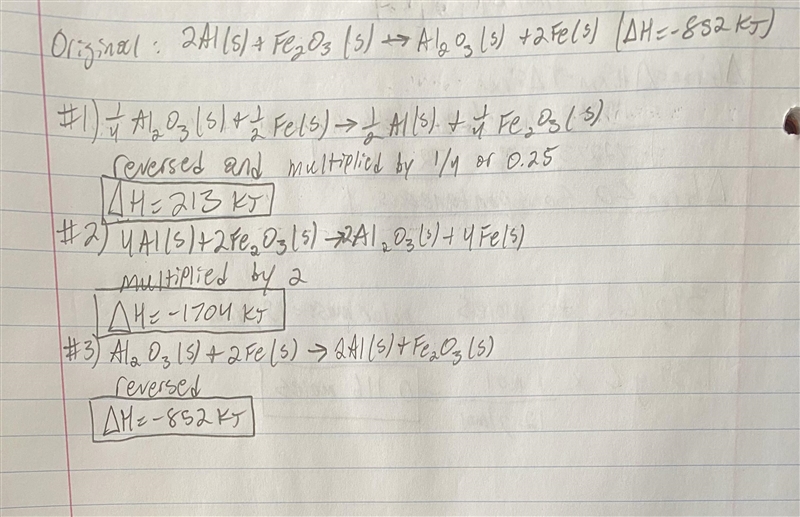 Original: 2Al(s) + Fe₂O₃(s) → Al₂O₃(s) + 2Fe(s) (ΔH=-852 KJ)
#1) 1/4 Al₂O₃(s) + 1/2 Fe(s) → 1/2 Al(s) + 1/4 Fe₂O₃(s)
reversed and multiplied by 1/4 or 0.25
ΔH=213 KJ
#2) 4Al(s) + 2Fe₂O₃(s) → 2Al₂O₃(s) + 4Fe(s)
multiplied by 2
ΔH=-1704 KJ
#3) Al₂O₃(s) + 2Fe(s) → 2Al(s) + Fe₂O₃(s)
reversed
ΔH=-852 KJ